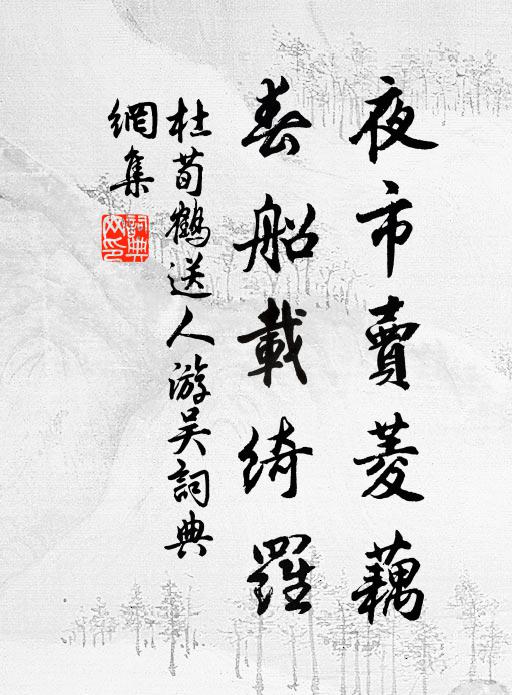 夜市賣菱藕
春船載綺羅
杜荀鶴送人游吴詞典
網集
詞典
网印